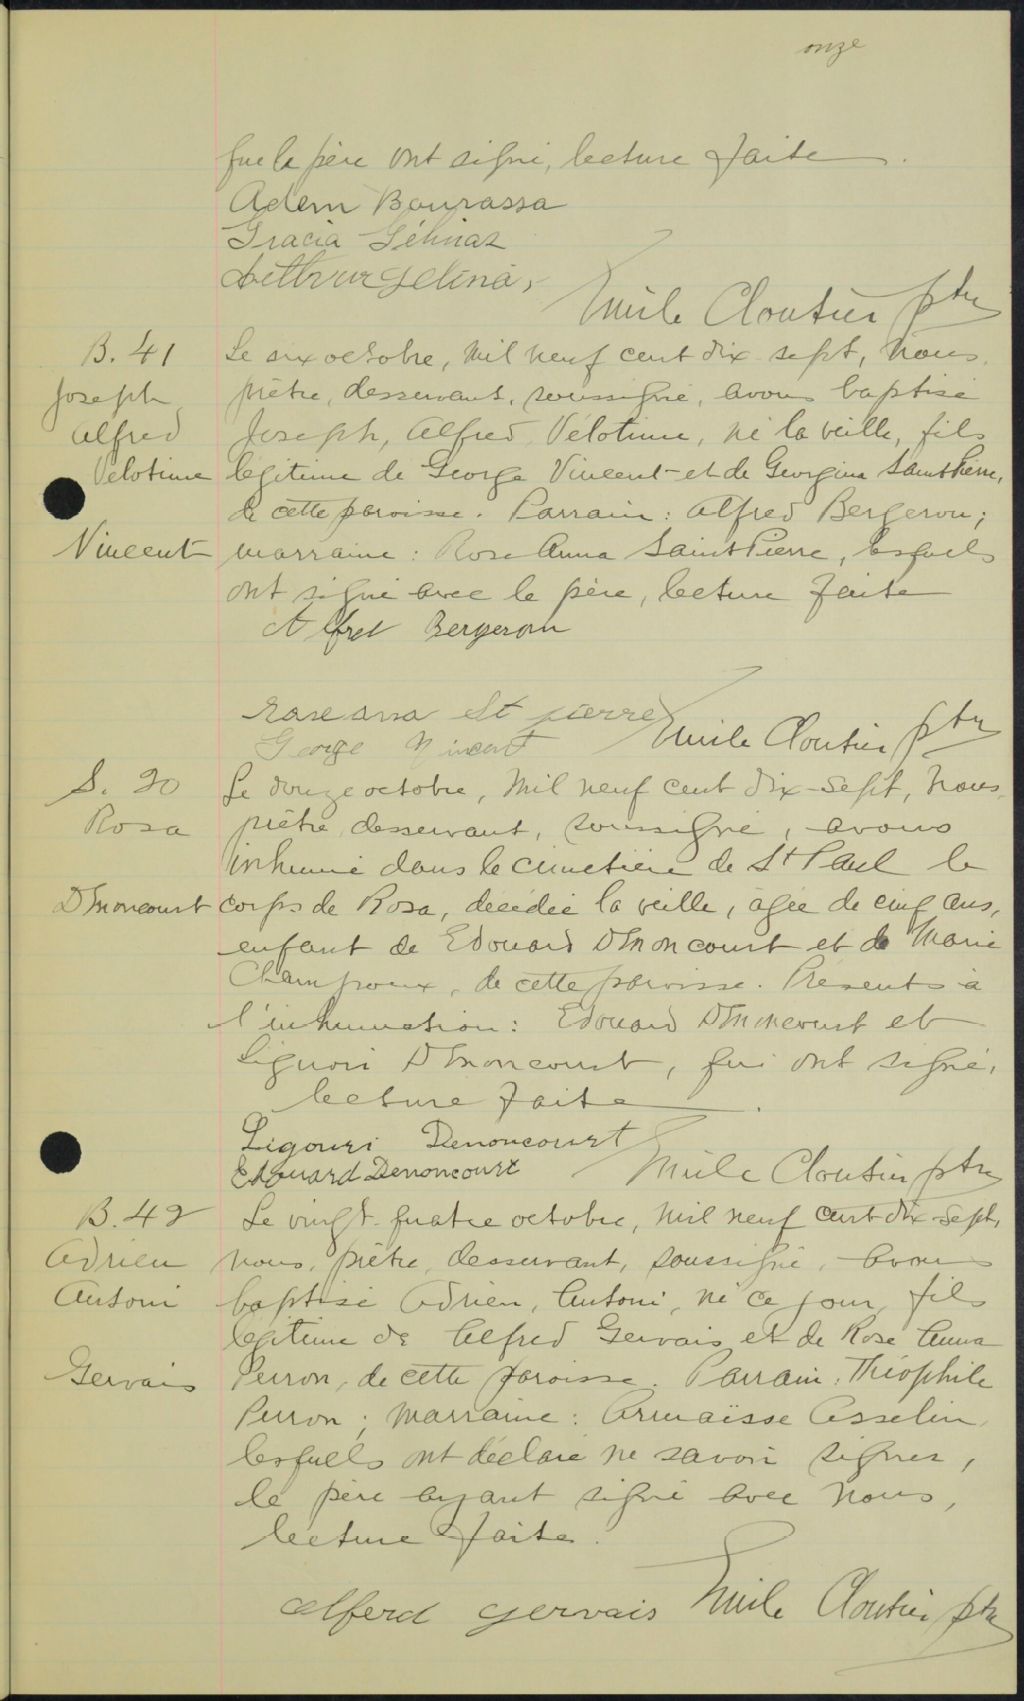 onze
que le père ont signé, lecture faite.
Adem Bourassa
Gracia Gélinas
Arthur gelina,
Emile Cloutier ptre
B. 41
Joseph
Alfred
Vélotime
Vincent
Le six octobre, mil neuf cent dix-sept, nous,
prêtre, desservant, soussigné, avons baptisé
Joseph, Alfred, Vélotime, né la veille, fils
légitime de George Vincent et de Georgina Saint Pierre,
de cette paroisse. Parrain: Alfred Bergeron;
marraine: Rose Anna Saint Pierre, lesquels
ont signé avec le père, lecture faite
Alfret Bergeron
Rose anna St pierre
George Vincent
Emile Cloutier ptre
S. 20
Rosa
D'Enoncourt
Le douze octobre, mil neuf cent dix-sept, nous,
prêtre, desservant, soussigné, avons
inhumé dans le cimetière de St Paul le
corps de Rosa, décédée la veille, âgée de cinq ans,
enfant de Edouard D'Enoncourt et de Marie
Champoux, de cette paroisse. Présents à
l'inhumation: Edouard D'Enoncourt et
Liguori D'Enoncourt, qui ont signé,
lecture faite.
Ligouri Denoncourt
Edouard Denoncourt
Emile Cloutier ptre
B. 42
Adrien
Antoni
Gervais
Le vingt-quatre octobre, mil neuf cent dix-sept,
nous, prêtre, desservant, soussigné, avons
baptisé Adrien, Antoni, né ce jour, fils
légitime de Alfred Gervais et de Rose Anna
Perron, de cette paroisse. Parrain: Théophile
Perron; marraine: Armaïsse Asselin,
lesquels ont déclaré ne savoir signer,
le père ayant signé avec nous,
lecture faite.
Alferd gervais
Emile Cloutier ptre